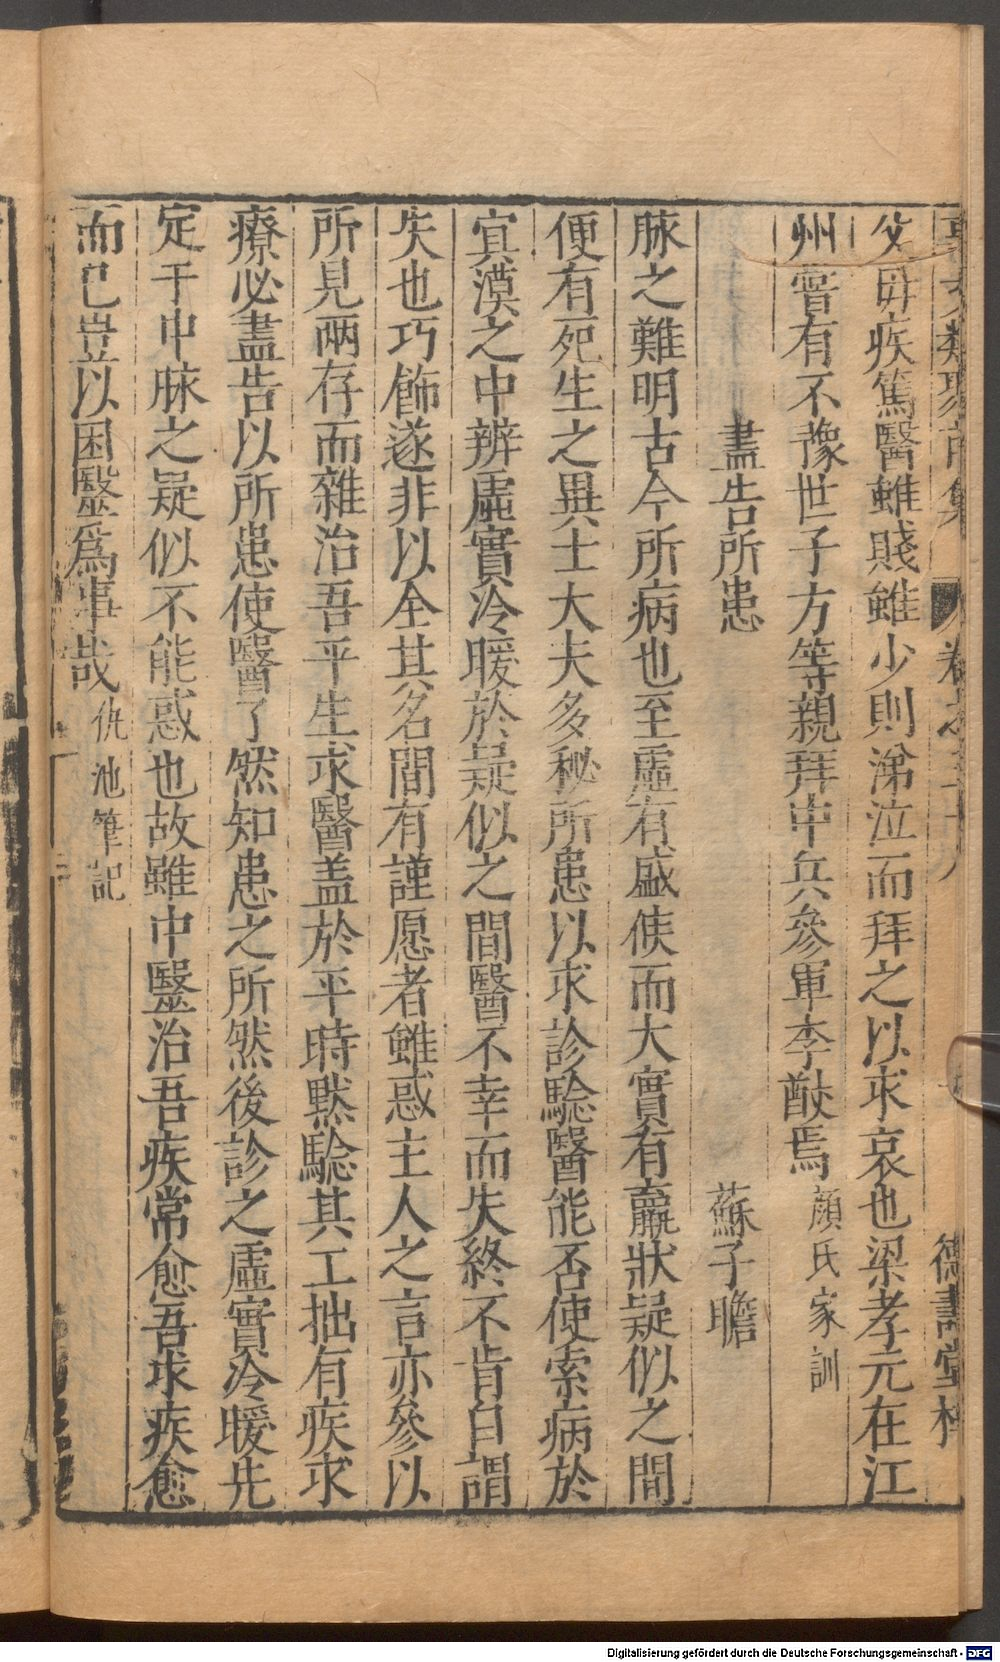 事文類聚前集 卷之三十八 德壽堂梓
父母疾篤醫雖賤雖少則涕泣而拜之以求哀也梁孝元在江
州嘗有不豫世子方等親拜中兵參軍李猷焉 顔氏家訓
盡告所患 蘇子瞻
脉之難明古今所病也至虛有盛候而大實有羸狀疑似之間
便有死生之異士大夫多秘所患以求診驗醫能否使索病於
㝠漠之中辨虛實冷暖於疑似之間醫不幸而失終不肯自謂
失也巧飾遂非以全其名間有謹愿者雖惑主人之言亦參以
所見兩存而雜治吾平生求醫盖於平時默驗其工拙有疾求
療必盡告以所患使醫了然知患之所然後診之虛實冷暖先
定于中脉之疑似不能惑也故雖中醫治吾疾常愈吾求疾愈
而已豈以困醫爲事哉 仇池筆記
Digitalisierung gefördert durch die Deutsche Forschungsgemeinschaft - DFG